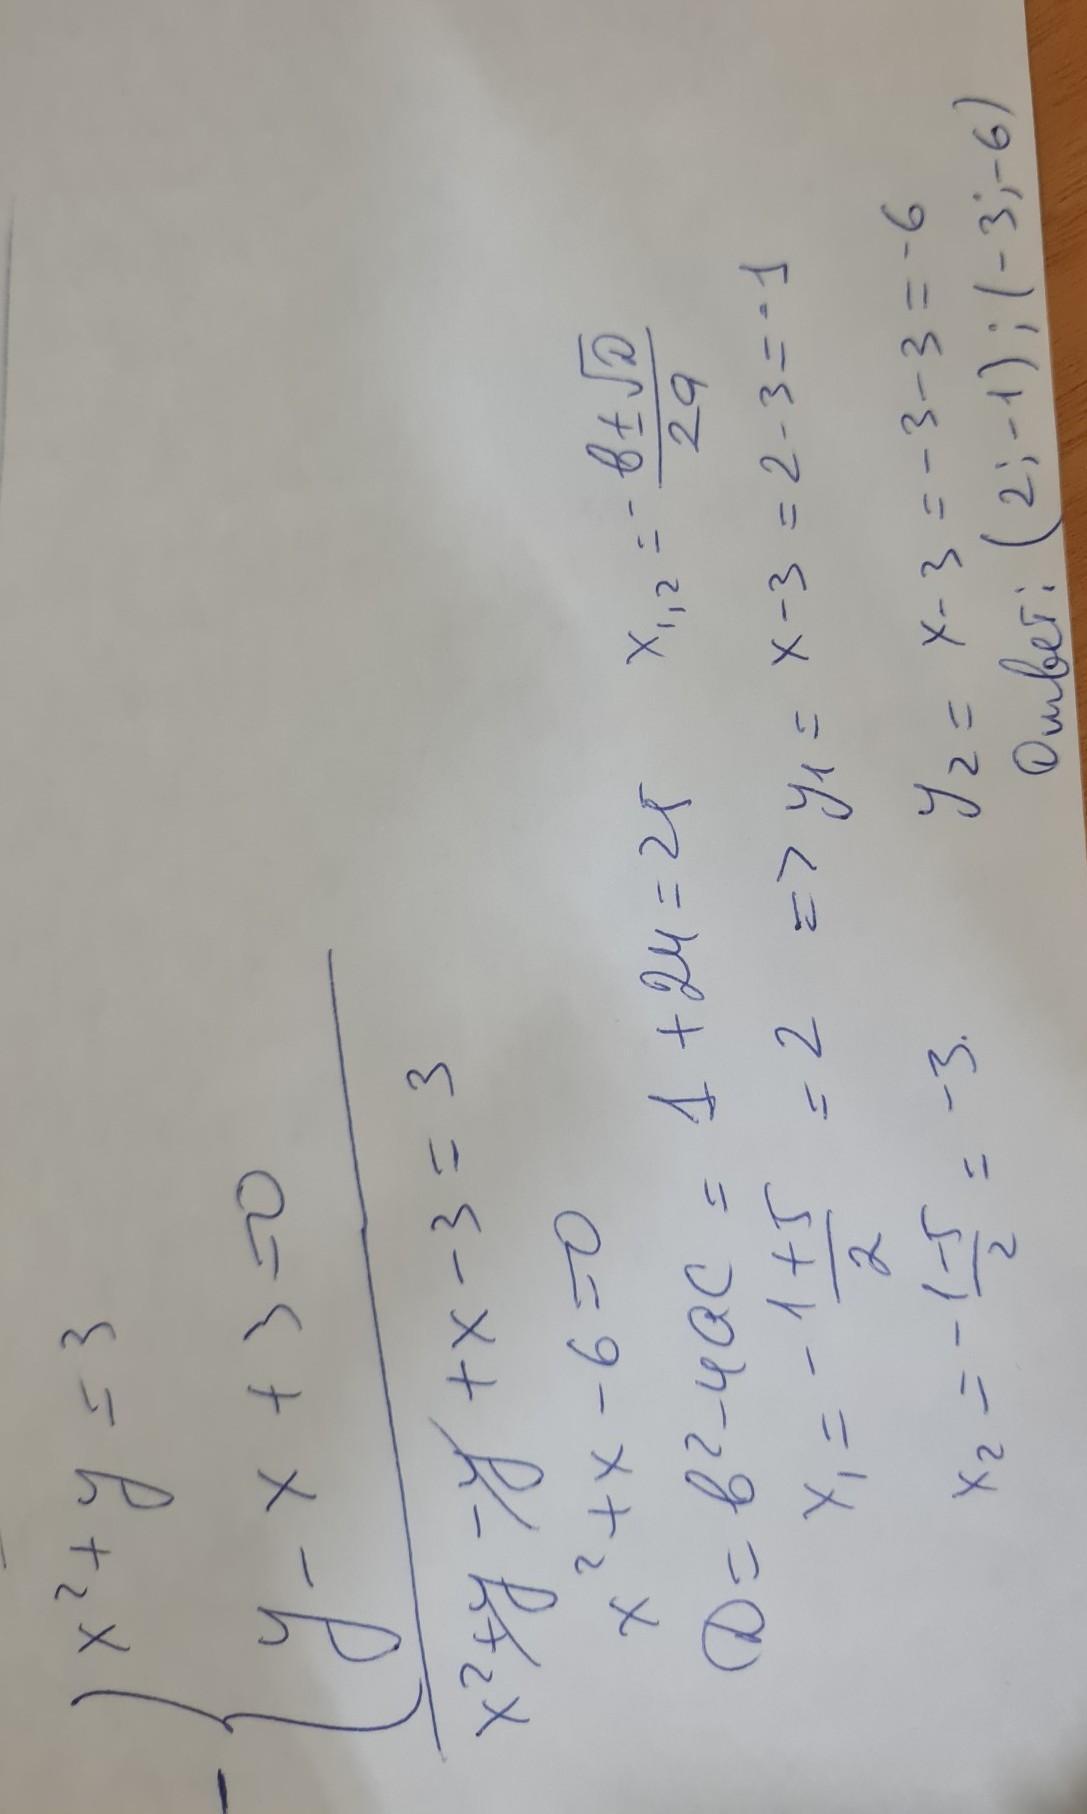 { x² + y = 3
− { y − x + 3 = 0
x² + y − y + x − 3 = 3
x² + x − 6 = 0
D = b² − 4ac = 1 + 24 = 25 x₁,₂ = −b ± √D / 2a
x₁ = −1 + 5 / 2 = 2 => y₁ = x − 3 = 2 − 3 = −1
x₂ = −1 − 5 / 2 = −3. y₂ = x − 3 = −3 − 3 = −6
Ответ: (2; −1); (−3; −6)